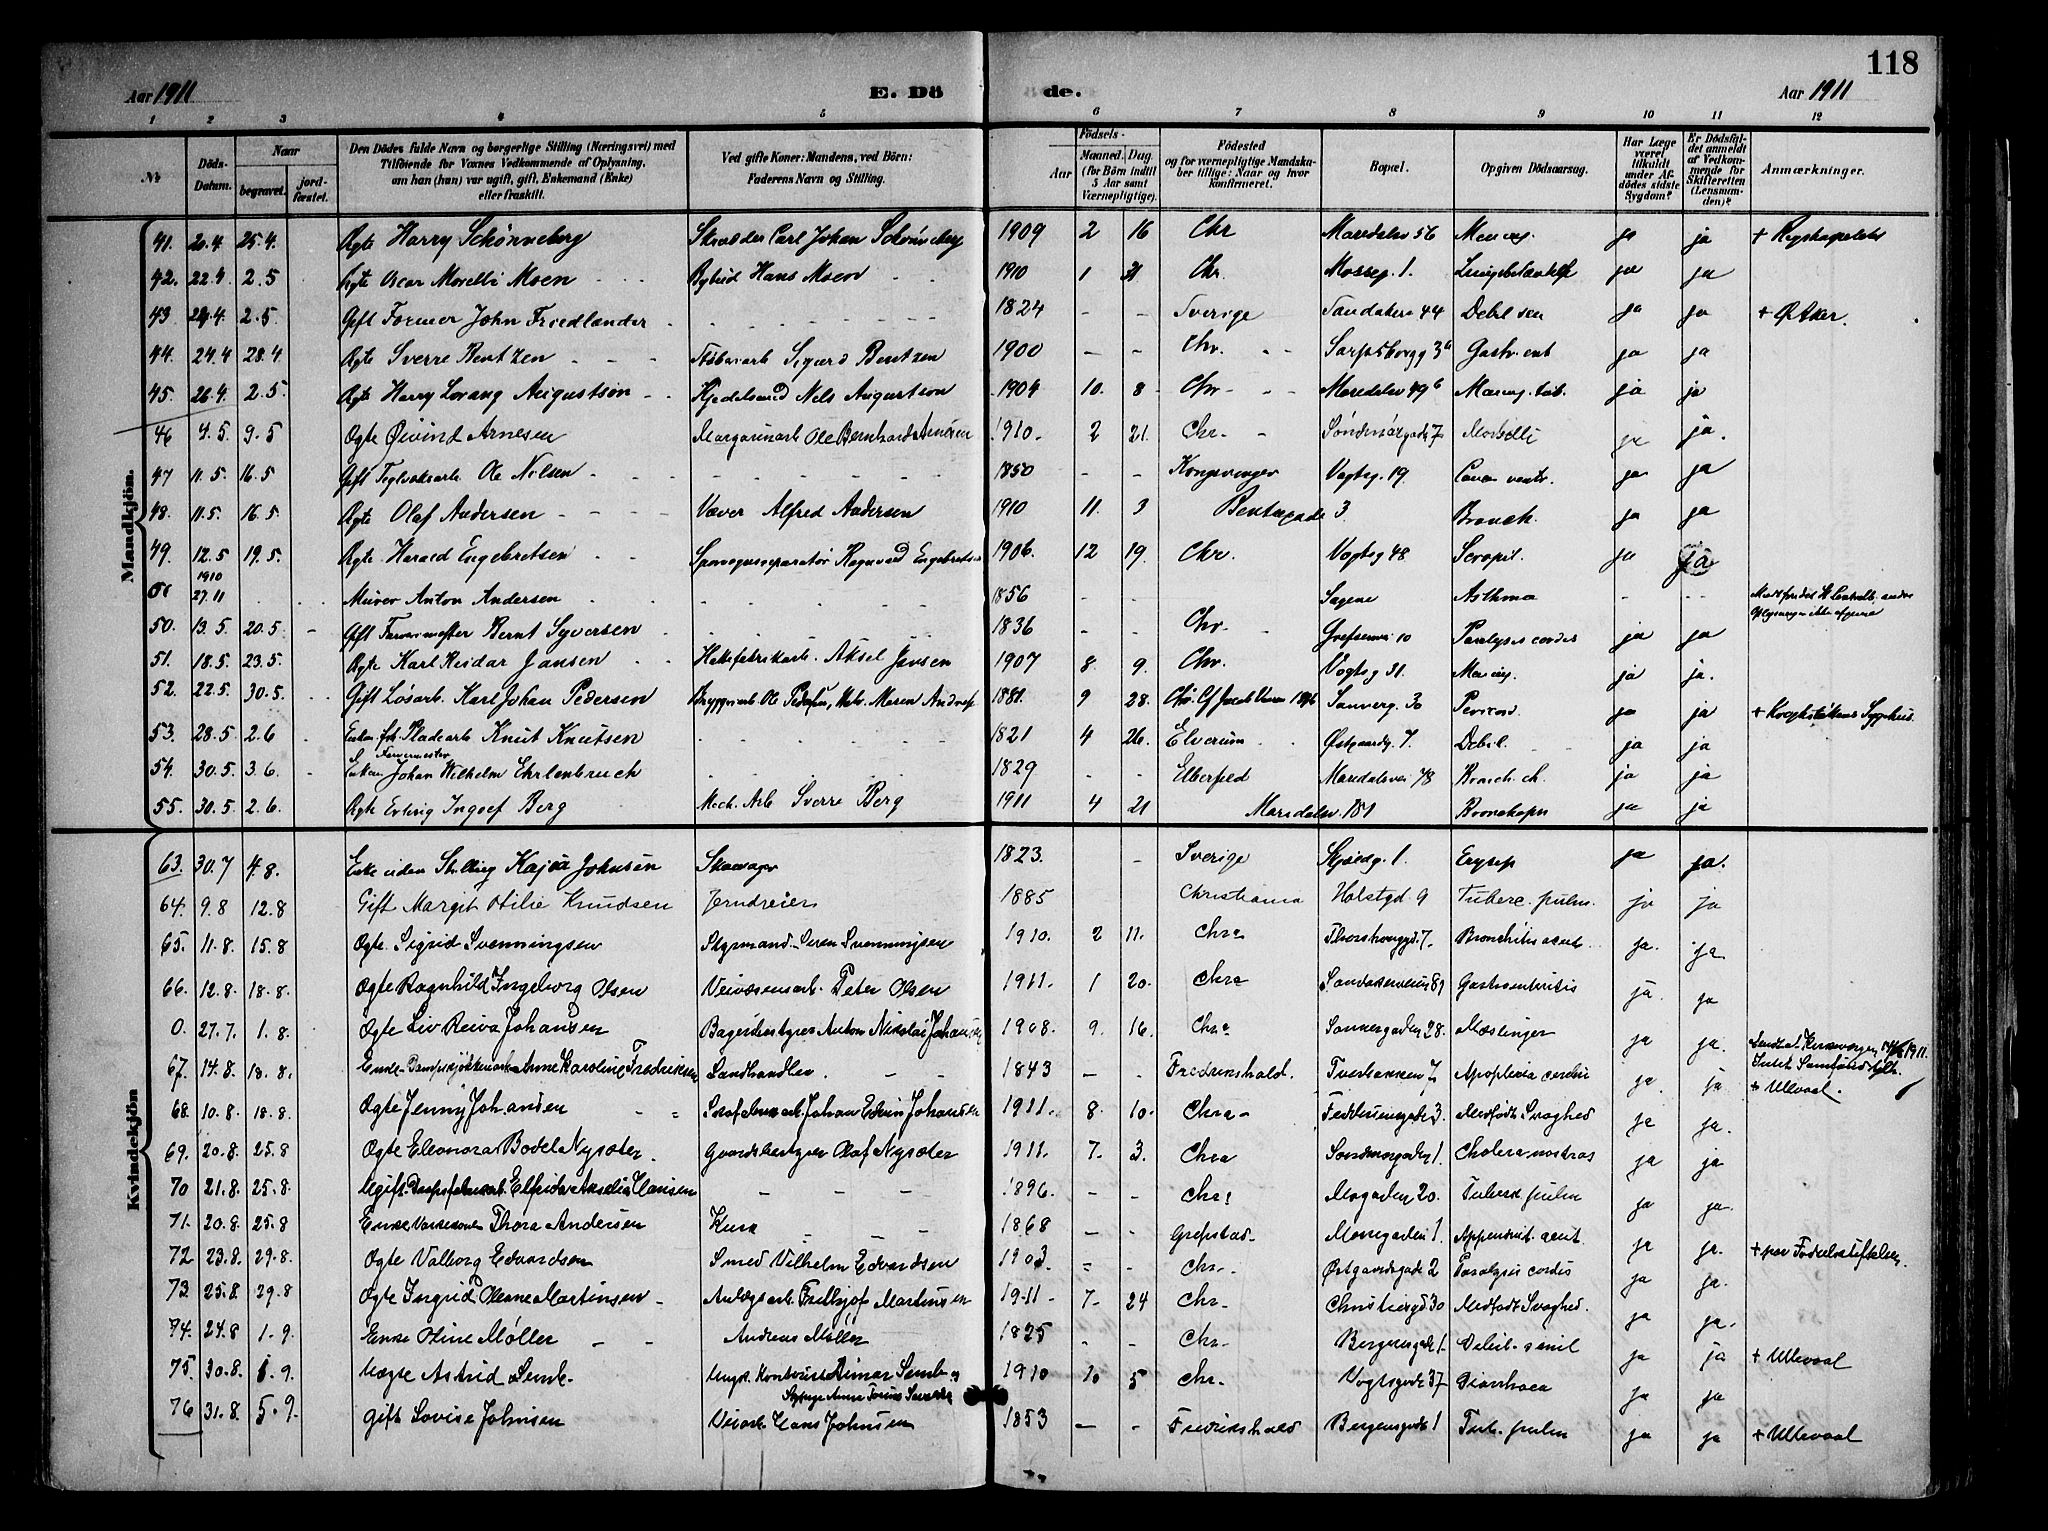 118
Aar 1911 E. Dö de. Aar 1911
1 2 3 4 5 6 7 8 9 10 11 12
№ Döds-Datum. Naar begravet. jordfæstet. Den Dödes fulde Navn og borgerlige Stilling (Næringsvei) med Tilföiende for Voxnes Vedkommende af Oplysning, om han (hun) var ugift, gift, Enkemand (Enke) eller fraskilt. Ved gifte Koner: Mandens, ved Börn: Faderens Navn og Stilling. Födsels- Aar Maaned. Dag. (for Börn indtil 5 Aar samt Værnepligtige). Födested og for værnepligtige Mandskaber tillige: Naar og hvor konfirmeret. Bopæl. Opgiven Dödsaarsag. Har Læge været tilkaldt under Afdödes sidste Sygdom? Er Dödsfaldet anmeldt af Vedkommende for Skifteretten (Lensmanden)? Anmærkninger.
Mandkjön.
41. 20.4. 25.4. Ægte Harry Schønneberg Carl Johan Schønneberg 1909 2 16 Chr Maridalsv 56 ja ja
42. 22.4 2.5 Ægte Oscar Morelli Moen Bybud Hans Moen 1910 1 31 Chr. Mosseg. 1. ja ja
43 24.4. 2.5. Gift Former John Friedlander 1824 Sverige 44 ja ja + Ø Aker.
44. 24.4 28.4 Ægte Sverre Bentzen Sigurd Bentzen 1900 Chr. Sarpsborgg 3a Gastr. ent ja ja
45. 26.4. 2.5. Ægte Harry Lorang Augustson Nels Augustson 1904 10. 8 Chr Maridalsv 49 b Mening. tub. ja ja
46 4.5. 9.5 Ægte Øivind Arnesen Margarinarb Ole Bernhard Arnesen 1910. 2 21. Chr. 7 Morbilli ja ja.
47 11.5. 16.5 Gift Teglverksarb. Ole Nilsen 1850 Kongsvinger Vogtsg. 19. Cancer ventr. ja ja
48. 11.5. 16.5. Ægte Olaf Andersen Væver Alfred Andersen 1910 11. 3 Bentsegade 3. Bronch. ja ja
49. 12.5 19.5. Ægte Harald Engebretsen Ragnvald Engebretsen 1906. 12 19. Chr. Vogtsg 48 ja ja
1910 27.11 Murer Anton Andersen 1856 Sagene Asthma
50. 13.5. 20.5. Gift Farvermester Bernt Syversen 1836 Chr. Grefsenvei 10 Paralysis cordis ja ja
51. 18.5. 23.5. Ægte Karl Reidar Jansen Aksel Jansen 1907 8. 9. Chr. Vogtsg 31. Mening. ja ja.
52. 22.5. 30.5. Gift Løsarb. Karl Johan Pedersen Bryggearb Ole Pedersen, 1881. 9 28. Sannerg. 30 ja ja + Krogstøttens Sygehus.
53. 28.5. 2.6 Knut Knutsen 1821 4 26. Elverum Østgaardg. 7. Debil. ja ja
54. 30.5. 3.6. Farvermester Johan Wilhelm Ehrlenbruch 1829 Elberfeld Maridalsvei 48 Bronch. ch. ja ja
55. 30.5. 2.6. Ægte Erling Ingolf Berg Mech. Arb Sverre Berg 1911 4 21 Maridalsv. 181 Bronchopn ja ja
Kvindekjön
63. 30.7 4.8. Enke uden Stilling Kajsa Johnsen Skomager 1823. Sverige Skjoldg. 1. Erysip ja ja.
64. 9.8 12.8 Gift Margit Otilie Knudsen Jerndreier 1885 Christiania Holstgd. 9 Tuberc. pulm. ja ja
65. 11.8. 15.8 Ægte. Sigrid Svenningsen Styrmand Søren Svenningsen 1910. 2 11. Chra 7. Bronchitis acut. ja. ja
66. 12.8. 18.8. Ægte Ragnhild Ingeborg Olsen Veivæsensarb. Peter Olsen 1911. 1 20. Chra Sandakerveien 81 Gastroenteritis ja. ja
0. 27.7. 1.8. Ægte Liv Reiva Johansen Bagerbestyrer Anton Nikolai Johansen 1908. 9. 16. Chra Sannergaden 28. Mæslinger ja ja.
67. 14.8. 18.8. Enke Anne Karoline Fredriksen Sandhandler 1843 Fredrikshald. Tverbakken 7. Apoplexia cerebri ja ja + Ullevaal.
68. 10.8. 18.8. Ægte Jenny Johansen Johan Edvin Johansen 1911. 8. 10. Chra 3. Medfødt Svaghed ja ja.
69. 20.8. 25.8 Ægte Eleonora Bodel Nysæter. Gaardsbestyrer Olaf Nysæter 1911. 7. 3. Chra 1. Cholera nostras ja ja
70 21.8. 25.8. Ugift Elfrida Amalia Hansen 1896. Chra Mogaden 20. Tuberk. pulm ja ja.
71. 20.8. 25.8 Enke Vaskekone Thora Andersen Kusk 1868 Grepstad Mossegaden 1 Appendicit. acut. ja ja.
72 23.8. 29.8. Ægte Valborg Edvardsen Smed Vilhelm Edvardsen 1903. Chr. Østgaardsgade 2 Paralysis cordis ja ja. + per Fødselsstiftelsen.
73. 25.8 29.8 Ægte Ingrid Olenne Martinsen Anlægsarb. Fridtjof Martinsen 1911 7. 24 Chr. Christiesgd. 30 Medfødt Svaghed. ja ja.
74. 24.8 1.9. Enke Oline Møller Andreas Møller 1825 Chr. Bergensgade 1 Debil. senil ja ja + Ullevaal
75. 30.8. 1.9. Uægte Astrid Semb. Ungk. Kontorist Aimar Semb og 1910 10 5 Chr. Vogtsgade 37 Diarrhoea ja ja
76 31.8. 5.9. Gift Lovise Johnsen Veiarb. Hans Johnsen 1853 Fredrikshald Bergensgade 1 Tub. pulm ja ja + Ullevaal